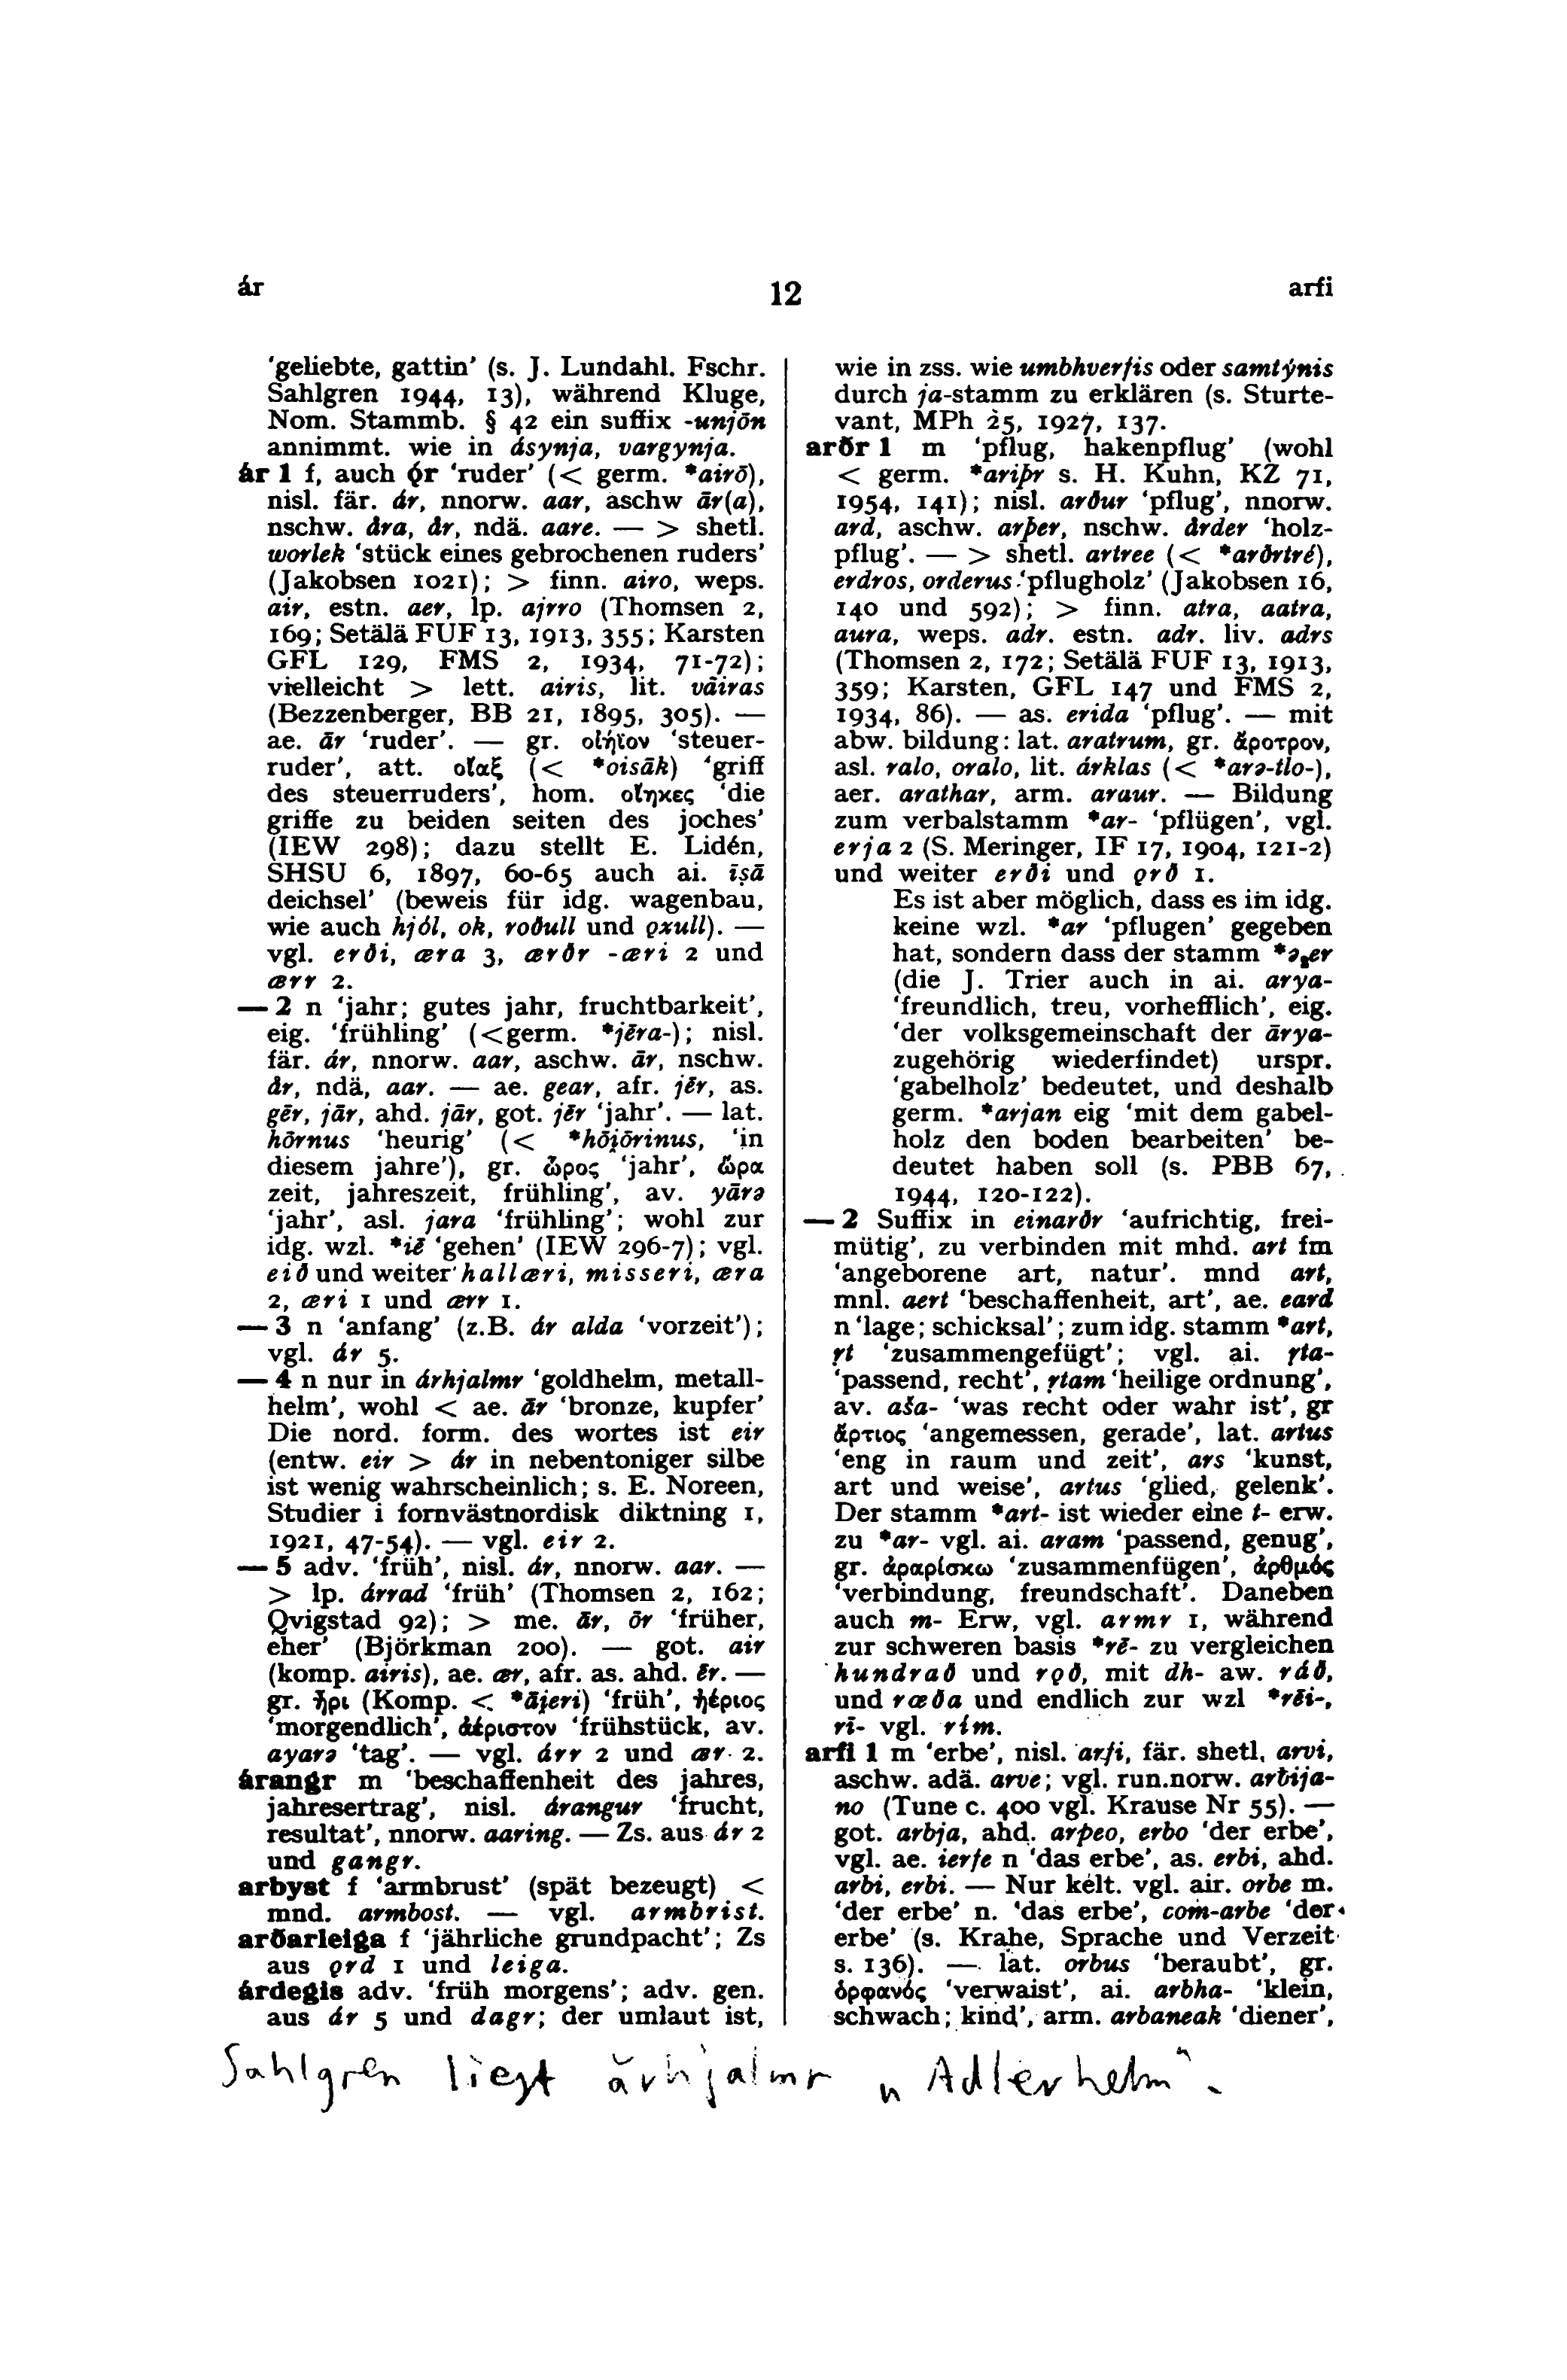 ár
12
arfi
'geliebte, gattin' (s. J. Lundahl. Fschr.
Sahlgren 1944, 13), während Kluge,
Nom. Stammb. § 42 ein suffix -unjōn
annimmt. wie in ásynja, vargynja.
ár 1 f, auch ǫ́r 'ruder' (< germ. *airō),
nisl. fär. ár, nnorw. aar, aschw ār(a),
nschw. åra, år, ndä. aare. — > shetl.
worlek 'stück eines gebrochenen ruders'
(Jakobsen 1021); > finn. airo, weps.
air, estn. aer, lp. ajrro (Thomsen 2,
169; Setälä FUF 13, 1913, 355; Karsten
GFL 129, FMS 2, 1934, 71-72);
vielleicht > lett. airis, lit. váiras
(Bezzenberger, BB 21, 1895, 305). —
ae. ār 'ruder'. — gr. οἰήϊον 'steuer-
ruder', att. οἴαξ (< *oisāk) 'griff
des steuerruders', hom. οἴηκες 'die
griffe zu beiden seiten des joches'
(IEW 298); dazu stellt E. Lidén,
SHSU 6, 1897, 60-65 auch ai. īṣā
deichsel' (beweis für idg. wagenbau,
wie auch hjól, ok, roðull und ǫxull). —
vgl. erði, æra 3, ærðr -æri 2 und
ærr 2.
— 2 n 'jahr; gutes jahr, fruchtbarkeit',
eig. 'frühling' (<germ. *jēra-); nisl.
fär. ár, nnorw. aar, aschw. ār, nschw.
år, ndä, aar. — ae. gear, afr. jēr, as.
gēr, jār, ahd. jār, got. jēr 'jahr'. — lat.
hōrnus 'heurig' (< *hōi̯ōrinus, 'in
diesem jahre'), gr. ὦρος 'jahr', ὥρα
zeit, jahreszeit, frühling', av. yārə
'jahr', asl. jara 'frühling'; wohl zur
idg. wzl. *iē 'gehen' (IEW 296-7); vgl.
eið und weiter hallæri, misseri, æra
2, æri 1 und ærr 1.
— 3 n 'anfang' (z.B. ár alda 'vorzeit');
vgl. ár 5.
— 4 n nur in árhjalmr 'goldhelm, metall-
helm', wohl < ae. ār 'bronze, kupfer'
Die nord. form. des wortes ist eir
(entw. eir > ár in nebentoniger silbe
ist wenig wahrscheinlich; s. E. Noreen,
Studier i fornvästnordisk diktning 1,
1921, 47-54). — vgl. eir 2.
— 5 adv. 'früh', nisl. ár, nnorw. aar. —
> lp. árrad 'früh' (Thomsen 2, 162;
Qvigstad 92); > me. ār, ōr 'früher,
eher' (Björkman 200). — got. air
(komp. airis), ae. ær, afr. as. ahd. ēr. —
gr. ἦρι (Komp. < *āi̯eri) 'früh', ἠέριος
'morgendlich', ἀέριστον 'frühstück, av.
ayarə 'tag'. — vgl. árr 2 und ær 2.
árangr m 'beschaffenheit des jahres,
jahresertrag', nisl. árangur 'frucht,
resultat', nnorw. aaring. — Zs. aus ár 2
und gangr.
arbyst f 'armbrust' (spät bezeugt) <
mnd. armbost. — vgl. armbrist.
arðarleiga f 'jährliche grundpacht'; Zs
aus ǫrd 1 und leiga.
árdegis adv. 'früh morgens'; adv. gen.
aus ár 5 und dagr; der umlaut ist,
wie in zss. wie umbhverfis oder samtýnis
durch ja-stamm zu erklären (s. Sturte-
vant, MPh 25, 1927, 137.
arðr 1 m 'pflug, hakenpflug' (wohl
< germ. *ariþr s. H. Kuhn, KZ 71,
1954, 141); nisl. arður 'pflug', nnorw.
ard, aschw. arþer, nschw. årder 'holz-
pflug'. — > shetl. artree (< *arðrtré),
erdros, orderus 'pflugholz' (Jakobsen 16,
140 und 592); > finn. atra, aatra,
aura, weps. adr. estn. adr. liv. adrs
(Thomsen 2, 172; Setälä FUF 13, 1913,
359; Karsten, GFL 147 und FMS 2,
1934, 86). — as. erida 'pflug'. — mit
abw. bildung: lat. aratrum, gr. ἄροτρον,
asl. ralo, oralo, lit. árklas (< *arə-tlo-),
aer. arathar, arm. araur. — Bildung
zum verbalstamm *ar- 'pflügen', vgl.
erja 2 (S. Meringer, IF 17, 1904, 121-2)
und weiter erði und ǫrð 1.
Es ist aber möglich, dass es im idg.
keine wzl. *ar 'pflugen' gegeben
hat, sondern dass der stamm
(die J. Trier auch in ai. arya-
'freundlich, treu, vorhefflich', eig.
'der volksgemeinschaft der ārya-
zugehörig wiederfindet) urspr.
'gabelholz' bedeutet, und deshalb
germ. *arjan eig 'mit dem gabel-
holz den boden bearbeiten' be-
deutet haben soll (s. PBB 67,
1944, 120-122).
— 2 Suffix in einarðr 'aufrichtig, frei-
mütig', zu verbinden mit mhd. art fm
'angeborene art, natur'. mnd art,
mnl. aert 'beschaffenheit, art', ae. eard
n 'lage; schicksal'; zum idg. stamm *art,
ṛt 'zusammengefügt'; vgl. ai. ṛta-
'passend, recht', ṛtam 'heilige ordnung',
av. aša- 'was recht oder wahr ist', gr
ἄρτιος 'angemessen, gerade', lat. artus
'eng in raum und zeit', ars 'kunst,
art und weise', artus 'glied, gelenk'.
Der stamm *art- ist wieder eine t- erw.
zu *ar- vgl. ai. aram 'passend, genug',
gr. ἀραρίσκω 'zusammenfügen', ἀρθμός
'verbindung, freundschaft'. Daneben
auch m- Erw, vgl. armr 1, während
zur schweren basis *rē- zu vergleichen
hundrað und rǫð, mit dh- aw. ráð,
und ræða und endlich zur wzl *rēi-,
rī- vgl. rím.
arfi 1 m 'erbe', nisl. arfi, fär. shetl, arvi,
aschw. adä. arve; vgl. run.norw. arƀija-
no (Tune c. 400 vgl. Krause Nr 55). —
got. arbja, ahd. arpeo, erbo 'der erbe',
vgl. ae. ierfe n 'das erbe', as. erbi, ahd.
arbi, erbi. — Nur kelt. vgl. air. orbe m.
'der erbe' n. 'das erbe', com-arbe 'der
erbe' (s. Krahe, Sprache und Verzeit
s. 136). — lat. orbus 'beraubt', gr.
ὀρφανός 'verwaist', ai. arbha- 'klein,
schwach; kind', arm. arbaneak 'diener',
Sahlgren liest ărhjalmr „Adlerhelm".